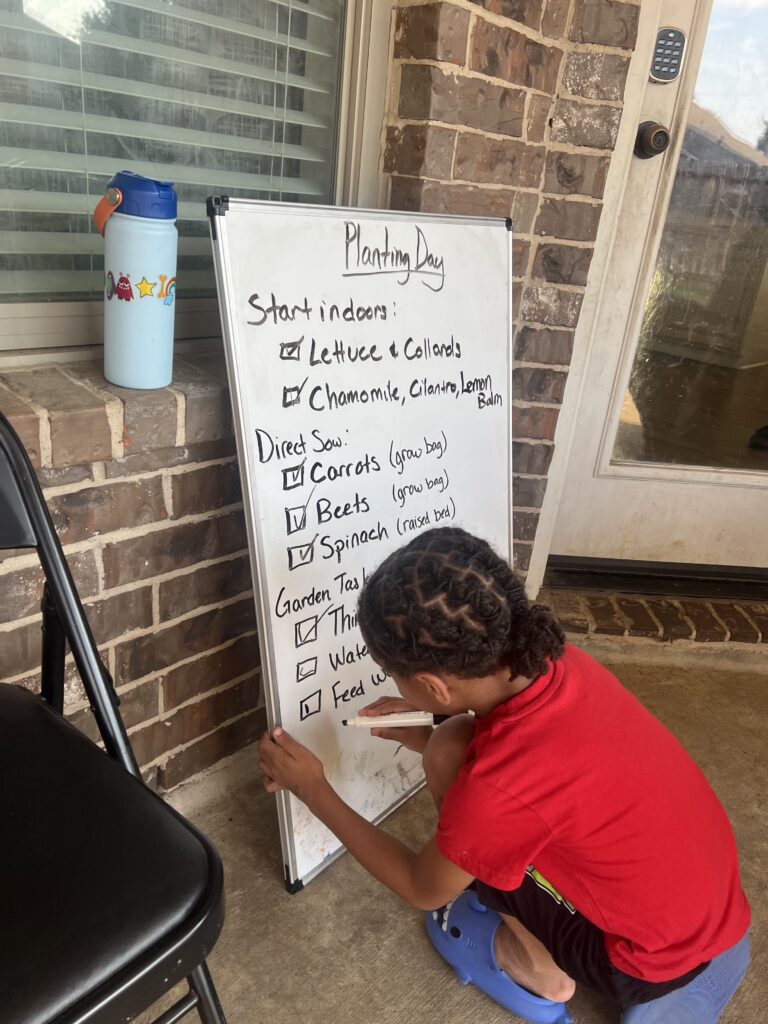 Planting Day
Start indoors:
Lettuce & Collards
Chamomile, Cilantro, Lemon
Balm
Direct Sow:
Carrots (grow bag)
Beets (grow bag)
Spinach (raised bed)
Garden
Feed